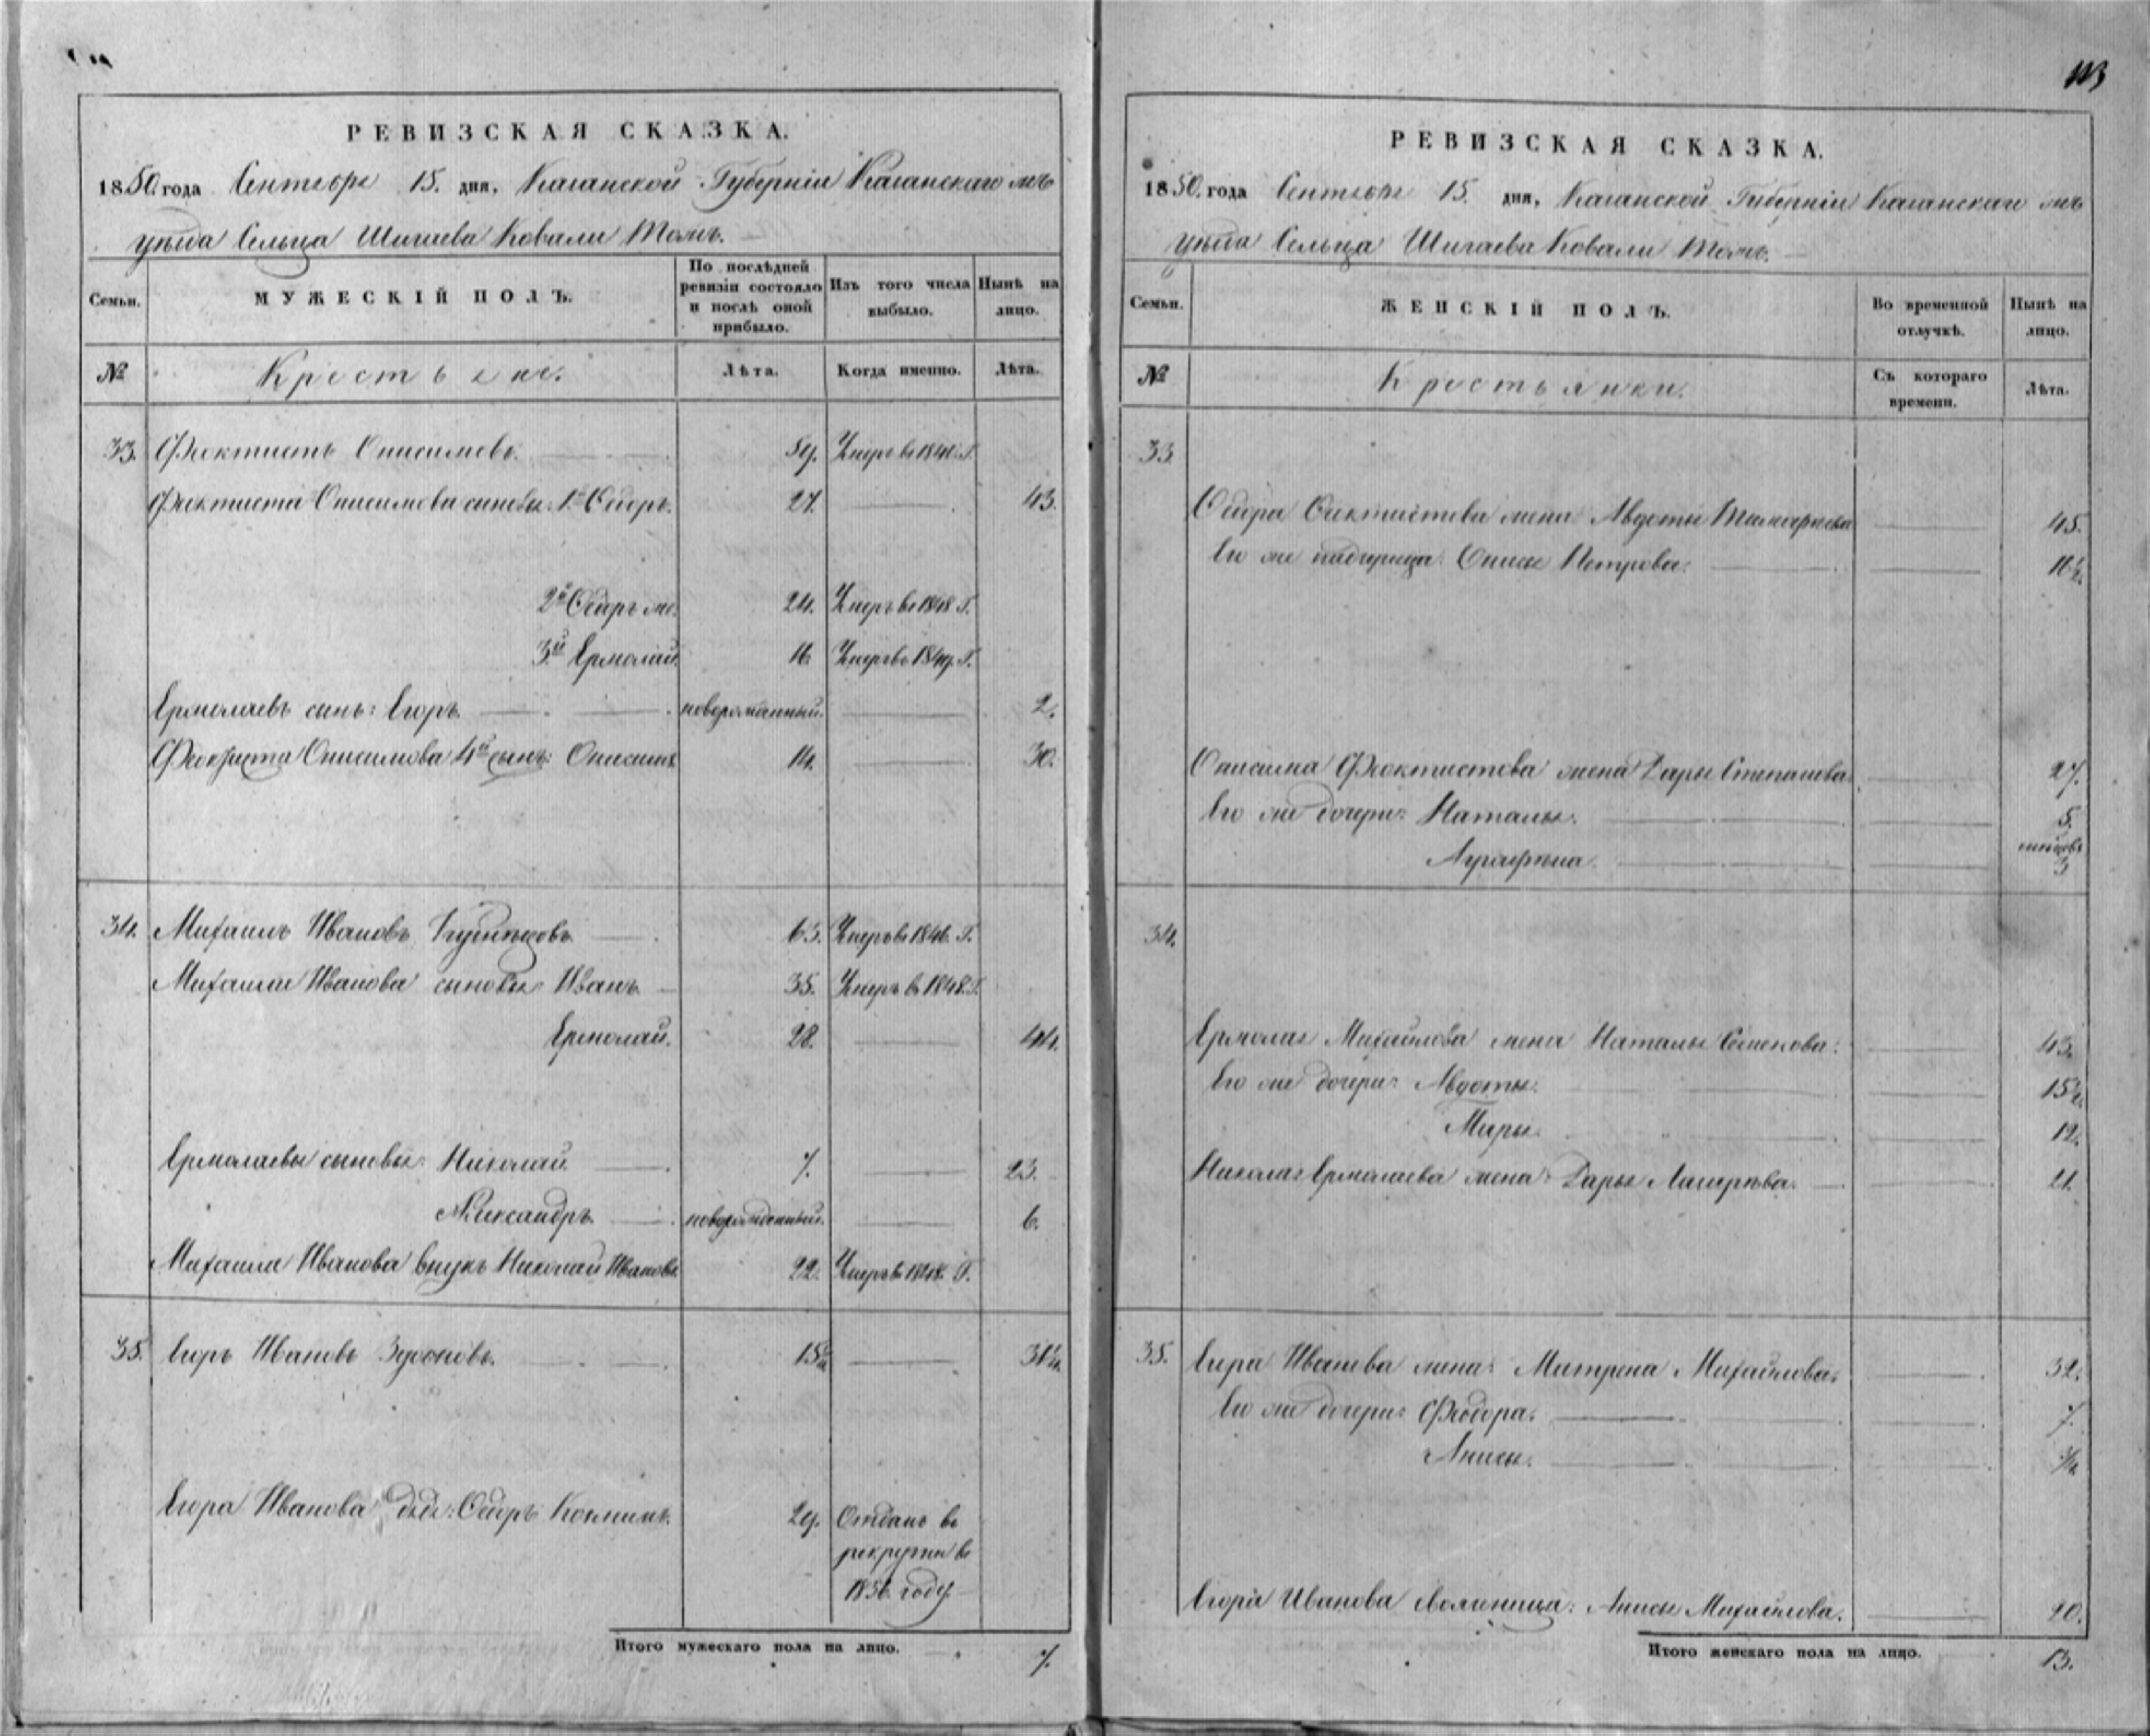 113
РЕВИЗСКАЯ СКАЗКА.
1850. года Сентября 15. дня, Казанской Губерніи Казанскаго
уѣзда Сельца Шигаева Ковали тожъ.
Семьи.
МУЖЕСКІЙ ПОЛЪ.
По послѣдней ревизіи состояло и послѣ оной прибыло.
Изъ того числа выбыло.
Нынѣ на лицо.
№
Крестьяне.
Лѣта.
Когда именно.
Лѣта.
33. Феоктистъ Онисимовъ. 59. Умеръ в
Феоктиста Онисимова сыновья: 1й Сидоръ. 27. 43.
2й Сидоръ же. 24. Умеръ в 1848 Г.
3й Ермолай. 16. Умеръ в 1849. Г.
Ермолаевъ сынъ: Егоръ. новорожденный. 2.
Феоктиста Онисимова 4й сынъ: Онисимъ 14. 30.
34. Михаилъ Ивановъ 63. Умеръ в 1846. Г.
Михаила Иванова сыновья: Иванъ. 35. Умеръ в 1848. Г.
Ермолай. 28. 44.
Ермолаевы сыновья: Николай 7. 23.
Александръ. новорожденный. 6.
Михаила Иванова внукъ Николай Ивановъ 22. Умеръ в 1848. Г.
35. Егоръ Ивановъ 15½ 31½
Егора Иванова дядя: Сидоръ Козминъ. 29. Отданъ въ
рекруты въ
году
Итого мужескаго пола на лицо. 7.
РЕВИЗСКАЯ СКАЗКА.
1850. года Сентября 15. дня, Казанской Губерніи Казанскаго
уѣзда Сельца Шигаева Ковали тожъ.
Семьи.
ЖЕНСКІЙ ПОЛЪ.
Во временной отлучкѣ.
Нынѣ на лицо.
№
Крестьянки.
Съ котораго времени.
Лѣта.
33.
Сидора Феоктистова жена Авдотья 45.
Его же падчерица: Петрова.
Онисима Феоктистова жена Дарья Степанова. 27.
Его же дочери: Наталья. 5.
Аграфена. 3
34.
Ермолая Михайлова жена Наталья Семенова. 43.
Его же дочери: Авдотья. 15½
Марья. 12.
Николая Ермолаева жена: Дарья 21.
35. Егора Иванова жена: Матрена Михайлова. 32.
Его же дочери: Феодора. 7.
Анисья.
Егора Иванова Анисья Михайлова. 20.
Итого женскаго пола на лицо. 13.